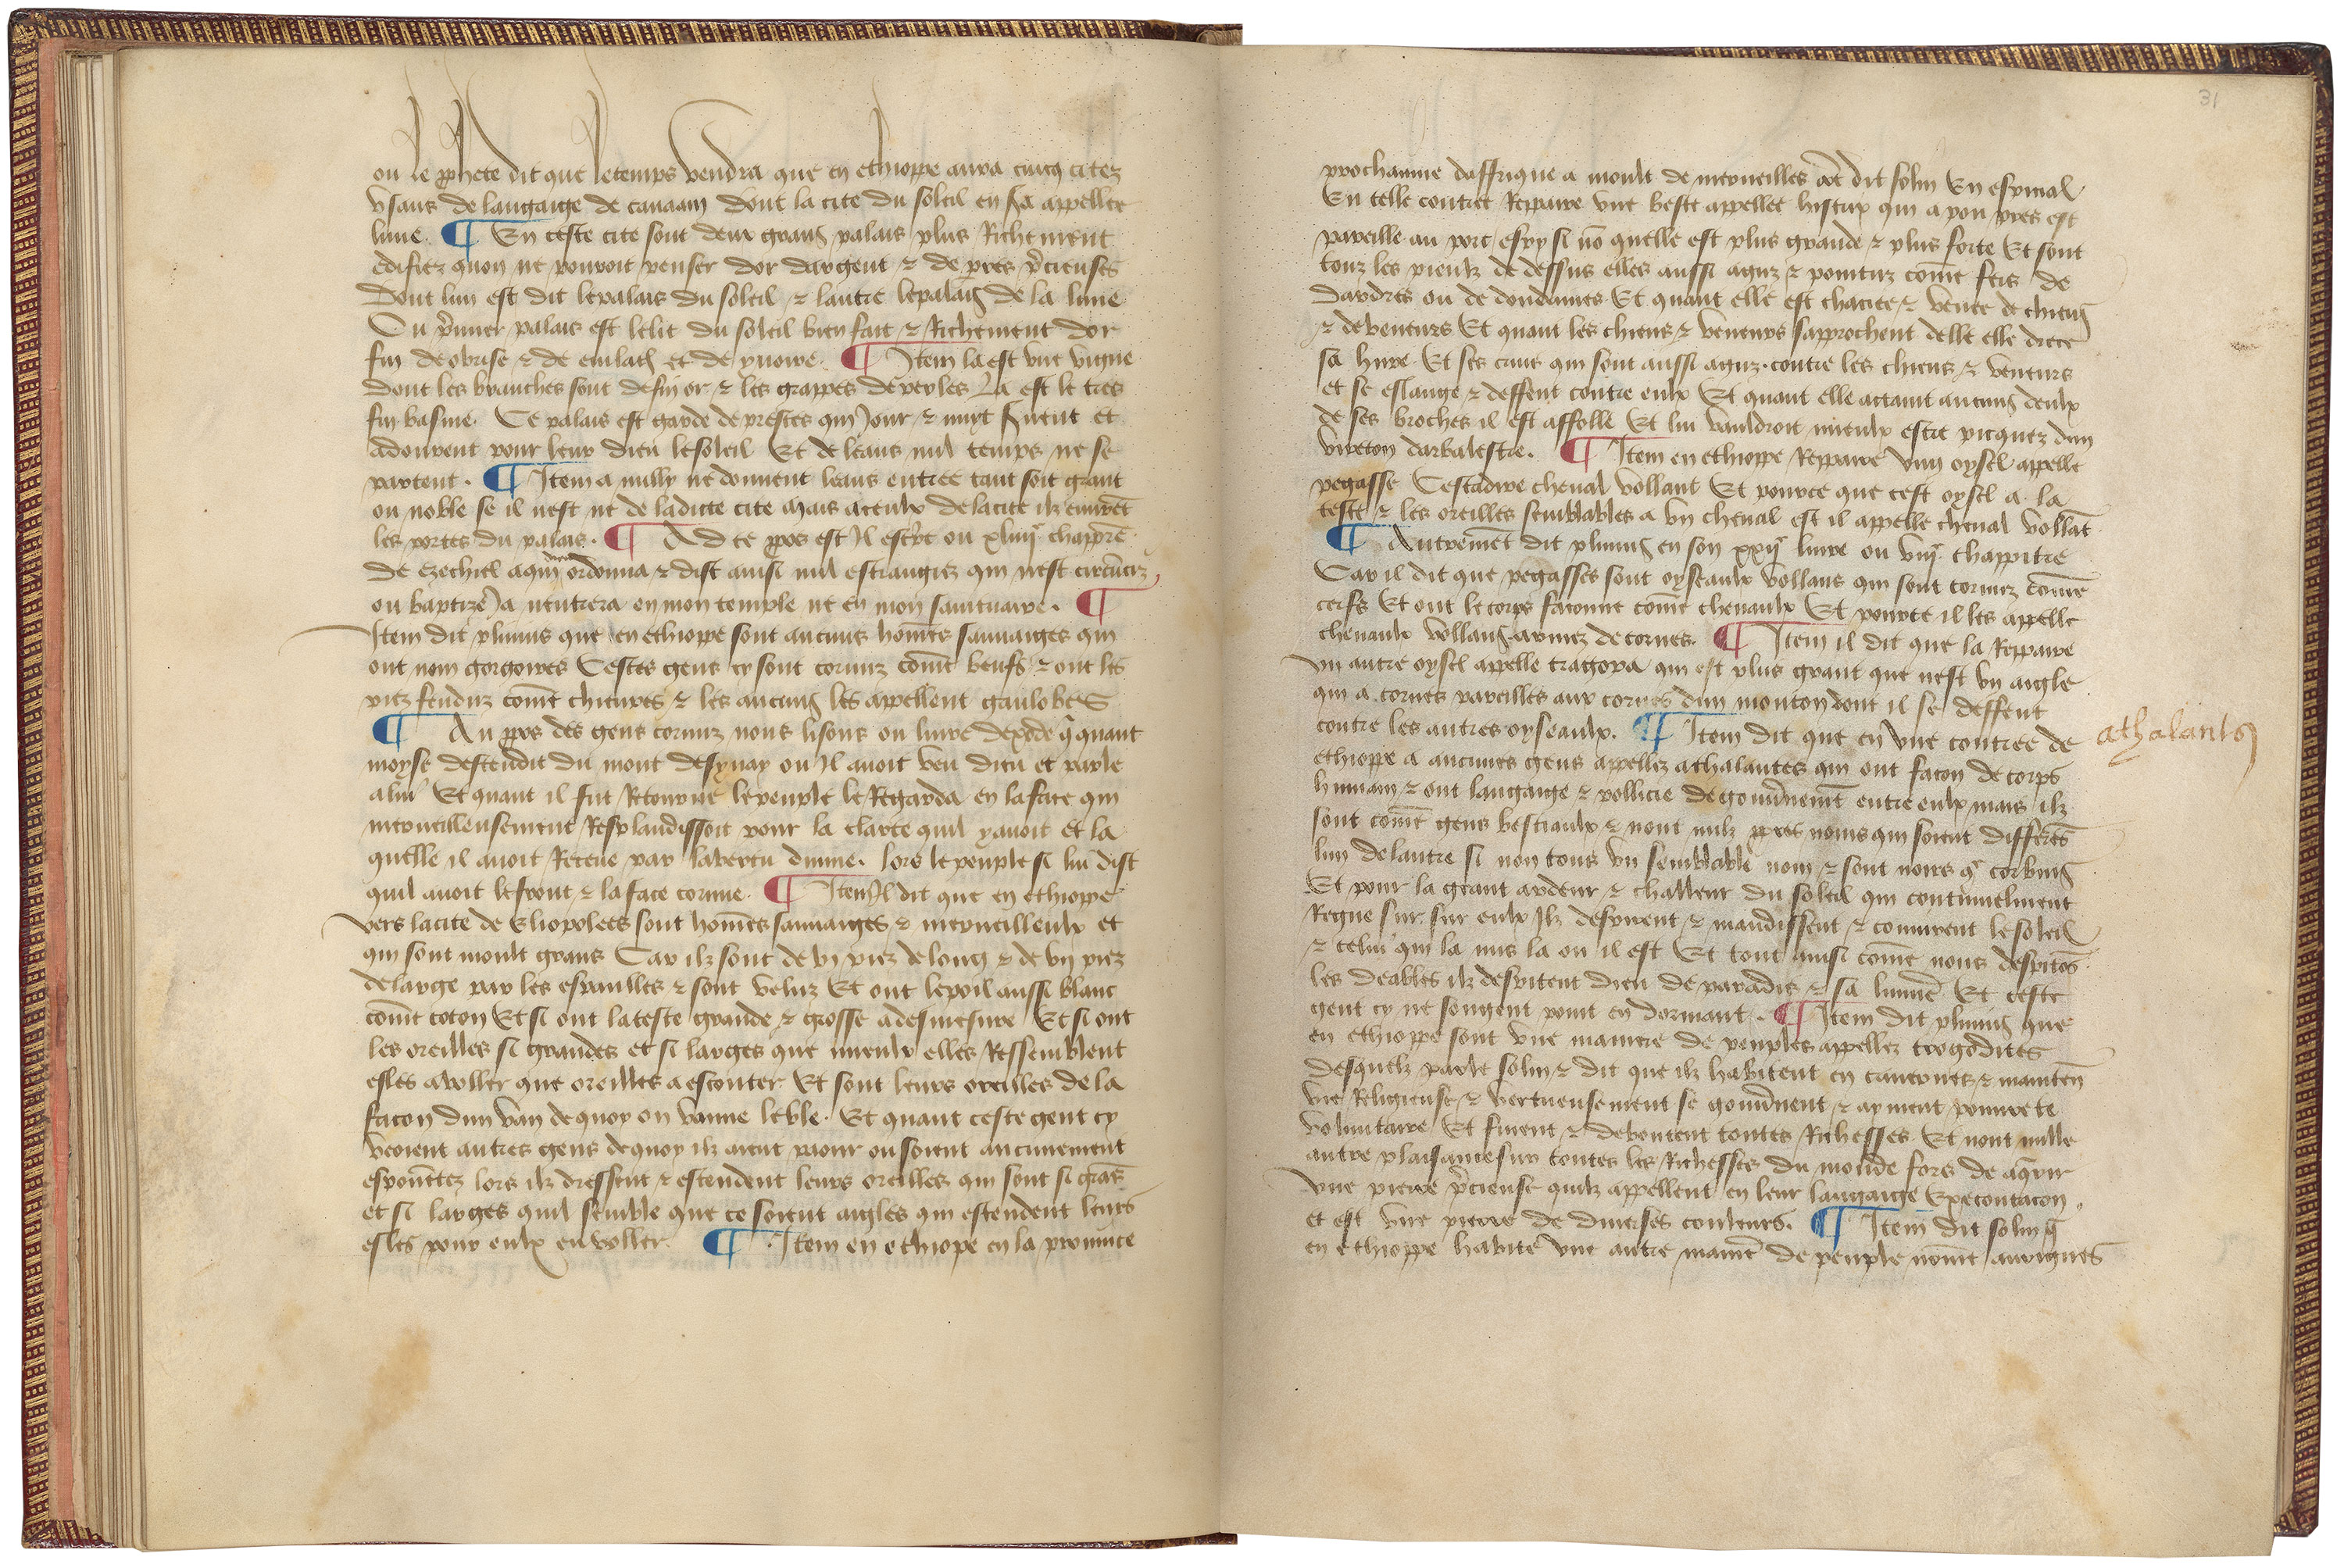 ou le pphete dit que letemps vendra que en ethiope aura cincq citez
usans de langaige de canaam dont la cite du soleil en sa appellee
lune. ¶ En ceste cite sont deux grans palais plus Richement
edifiez quon ne pouroit penser dor dargent ⁊ de pres pcieuses
Dont lun est dit lepalais du soleil ⁊ lautre lepalais de la lune
Ou pmier palais est lelit du soleil bien fait ⁊ Richement dor
fin de obrise ⁊ de et de yuoire. ¶ Item la est une vigne
dont les branches sont defin or ⁊ les grappes de perles La est le tres
fin basme. Ce palais est garde de prestres qui Jour ⁊ nuyt seruent et
adourent pour leur dieu lesoleil Et de leans nul temps ne se
partent. ¶ Item a nully ne donnent leans entree tant soit grant
ou noble se il nest ne de ladicte cite Mais aceulx delacite ilz euuret
les portes du palais. ¶ Ad ce ppos est Il escpt ou xliiij chappre
de ezechiel aqui dieu ordonna ⁊ dist ainsi nul estrangiez qui nest circucis
ou baptize Ja nentrera en mon temple ne en mon sanctuaire. ¶
Item dit plinius que en ethiope sont aucuns homes sauuaiges qui
ont nom gorgones Cestes gens cy sont cornuz come beufs ⁊ ont les
piez fenduz come chieures ⁊ les aucuns les appellent gaulobes
¶ Au ppos des gens cornuz nous lisons ou liure dexode q quant
moyse descendit du mont desynay ou Il auoit veu dieu et parle
alui Et quant il fut Retourne lepeuple le Regarda en laface qui
merueilleusement Resplandissoit pour la clarte quil yauoit et la
quelle il auoit Receue par lavertu diuine. lors lepeuple si lui dist
quil auoit lefront ⁊ laface cornue. ¶ Item Il dit que en ethiope
vers lacite de Eliopolees sont homes sauuaiges ⁊ merueilleulx et
qui sont moult grans Car ilz sont de vj piez delong ⁊ de vij piez
delarge par les espaulles ⁊ sont veluz Et ont lepoil aussi blanc
come coton Et si ont lateste grande ⁊ grosse adesmesure Et si ont
les oreilles si grandes et si larges que mieulx elles Ressemblent
esles avoller que oreilles aescouter Et sont leurs oreilles de la
facon dun van dequoy on vanne leble. Et quant ceste gent cy
veoient autres gens dequoy ilz aient paour ousoient aucunement
espouetez lors ilz dressent ⁊ estendent leurs oreilles qui sont si gras
et si larges quil semble que ce soient aigles qui estendent leurs
esles pour eulx en voller. ¶ Item en ethiope en la prouince
31
prochainne daffrique a moult de merueilles dit solin En espicial
En celle contree Reppaire une beste appellee histrix qui a pou pres est
pareille au porc espy si no quelle est plus grande ⁊ plus forte Et sont
touz les pieulx de dessus elles aussi aguz ⁊ pointuz come fers de
dardres ou de dondaines Et quant elle est chacee ⁊ venee de chiens
⁊ deveneurs Et quant les chiens ⁊ veneurs sapprochent delle elle drece
sa hure Et ses crins qui sont aussi aguz. contre les chiens ⁊ veneurs
et se eslance ⁊ deffent contre eulx Et quant elle actaint aucuns deulx
de ses broches il est affolle Et lui vauldroit mieulx estre picquez dun
vireton darbalestre. ¶ Item en ethiope Reppaire ung oysel appelle
pegasse Cestadire cheual vollant Et pource que cest oysel a la
teste ⁊ les oreilles semblables a un cheual est il appelle cheual vollat
¶ Autremet dit plinius en son xxij liure ou viij chappitre
Car il dit que pegasses sont oyseaulx vollans qui sont cornuz come
cerfs Et ont lecorps faconne come cheuaulx Et pource il les appelle
cheuaulx vollans armez de cornes. ¶ Item il dit que la Reppaire
un autre oysel appelle tragopa qui est plus grant que nest un aigle
qui a cornes pareilles aux cornes dun mouton dont il se deffent
contre les autres oyseaulx. ¶ Item dit que en une contree de
athalants
ethiope a aucunes gens appellez athalantes qui ont facon de corps
humain ⁊ ont langaige ⁊ pollicie de gouunemet entre eulx mais ilz
sont come gens bestiaulx ⁊ nont nulz ppres noms qui soient differes
lun delautre si non tous un semblable nom ⁊ sont noirs q corbins
Et pour la grant ardeur ⁊ challeur du soleil qui continuelment
Regne sur sur eulx Ilz despitent ⁊ maudissent ⁊ lesoleil
⁊ celui qui la mis la ou il est Et tout ainsi come nous despitos
les deables ilz despitent dieu de paradis ⁊ sa lumie Et ceste
gent cy ne songent point en dormant. ¶ Item dit plinius que
en ethiope sont une maniere de peuples appellez trogodites
desquelz parle solin ⁊ dit que ilz habitent en cauernes ⁊ mainten
vie Religieuse ⁊ vertueusement se gouuunent ⁊ ayment pourete
voluntaire Et fuient ⁊ deboutent toutes Richesses Et nont nulle
autre plaisance sur toutes les Richesses du monde fors de aqrir
une pierre pcieuse quilz appellent en leur langaige Expecontacon.
et est une pierre de diuerses couleurs. ¶ Item dit solin q
en ethiope habite une autre manie de peuple nome auuignes